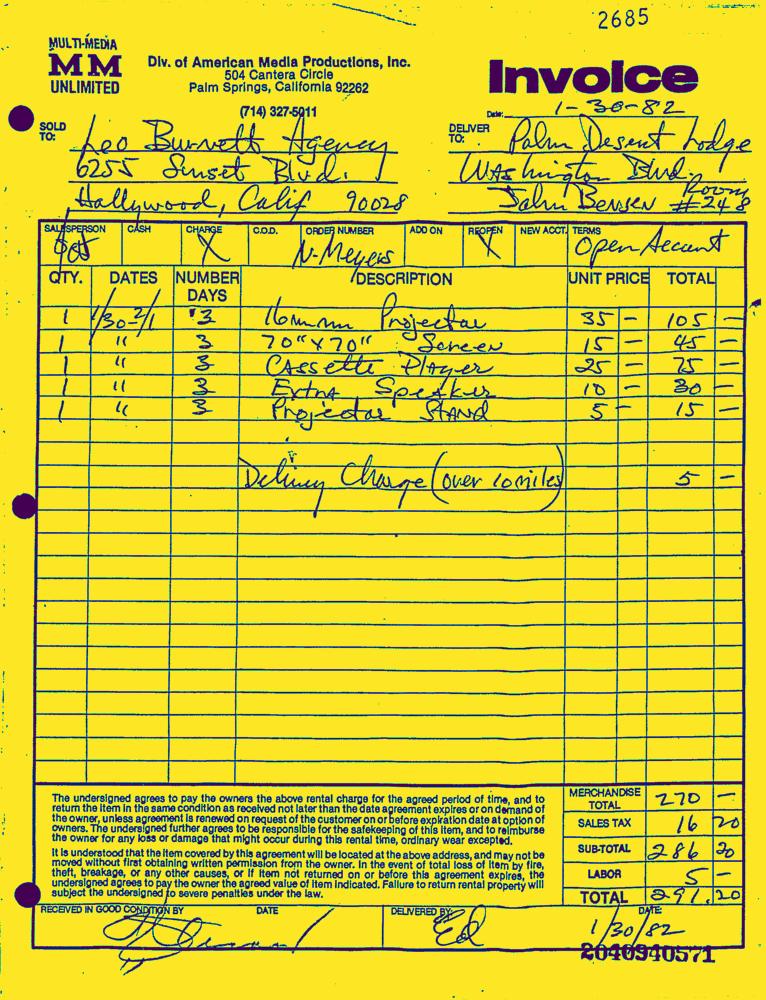 2685
MULTI-MEDIA
MM
UNLIMITED
Div. of American Media Productions, Inc.
504 Cantera Circle
Palm Springs, California 92262
(714) 327-5911
Invoice
Date: 1-30-82
SOLD TO: Leo Burnett Agency
6255 Sunset Blvd.
Hollywood, Calif 90028
DELIVER TO: Palm Desert Lodge
Washington Blvd.
John Bensen Room #248
SALESPERSON CASH CHARGE C.O.D. ORDER NUMBER ADD ON REOPEN NEW ACCT. TERMS
X N. Meyers X Open Account
QTY. DATES NUMBER DAYS DESCRIPTION UNIT PRICE TOTAL
1 1/30-2/1 3 16mm Projector 35 - 105 -
1 " 3 70"x70" Screen 15 - 45 -
1 " 3 Cassette Player 25 - 75 -
1 " 3 Extra Speaker 10 - 30 -
1 " 3 Projector Stand 5 - 15 -
Delivery Charge (over 10 miles) 5 -
The undersigned agrees to pay the owners the above rental charge for the agreed period of time, and to
return the item in the same condition as received not later than the date agreement expires or on demand of
the owner, unless agreement is renewed on request of the customer on or before expiration date at option of
owners. The undersigned further agrees to be responsible for the safekeeping of this item, and to reimburse
the owner for any loss or damage that might occur during this rental time, ordinary wear excepted.
It is understood that the item covered by this agreement will be located at the above address, and may not be
moved without first obtaining written permission from the owner. In the event of total loss of item by fire,
theft, breakage, or any other causes, or if item not returned on or before this agreement expires, the
undersigned agrees to pay the owner the agreed value of item indicated. Failure to return rental property will
subject the undersigned to severe penalties under the law.
MERCHANDISE TOTAL 270 -
SALES TAX 16 20
SUB-TOTAL 286 20
LABOR 5 -
TOTAL 291.20
RECEIVED IN GOOD CONDITION BY DATE DELIVERED BY: Ed DATE: 1/30/82
2040940571